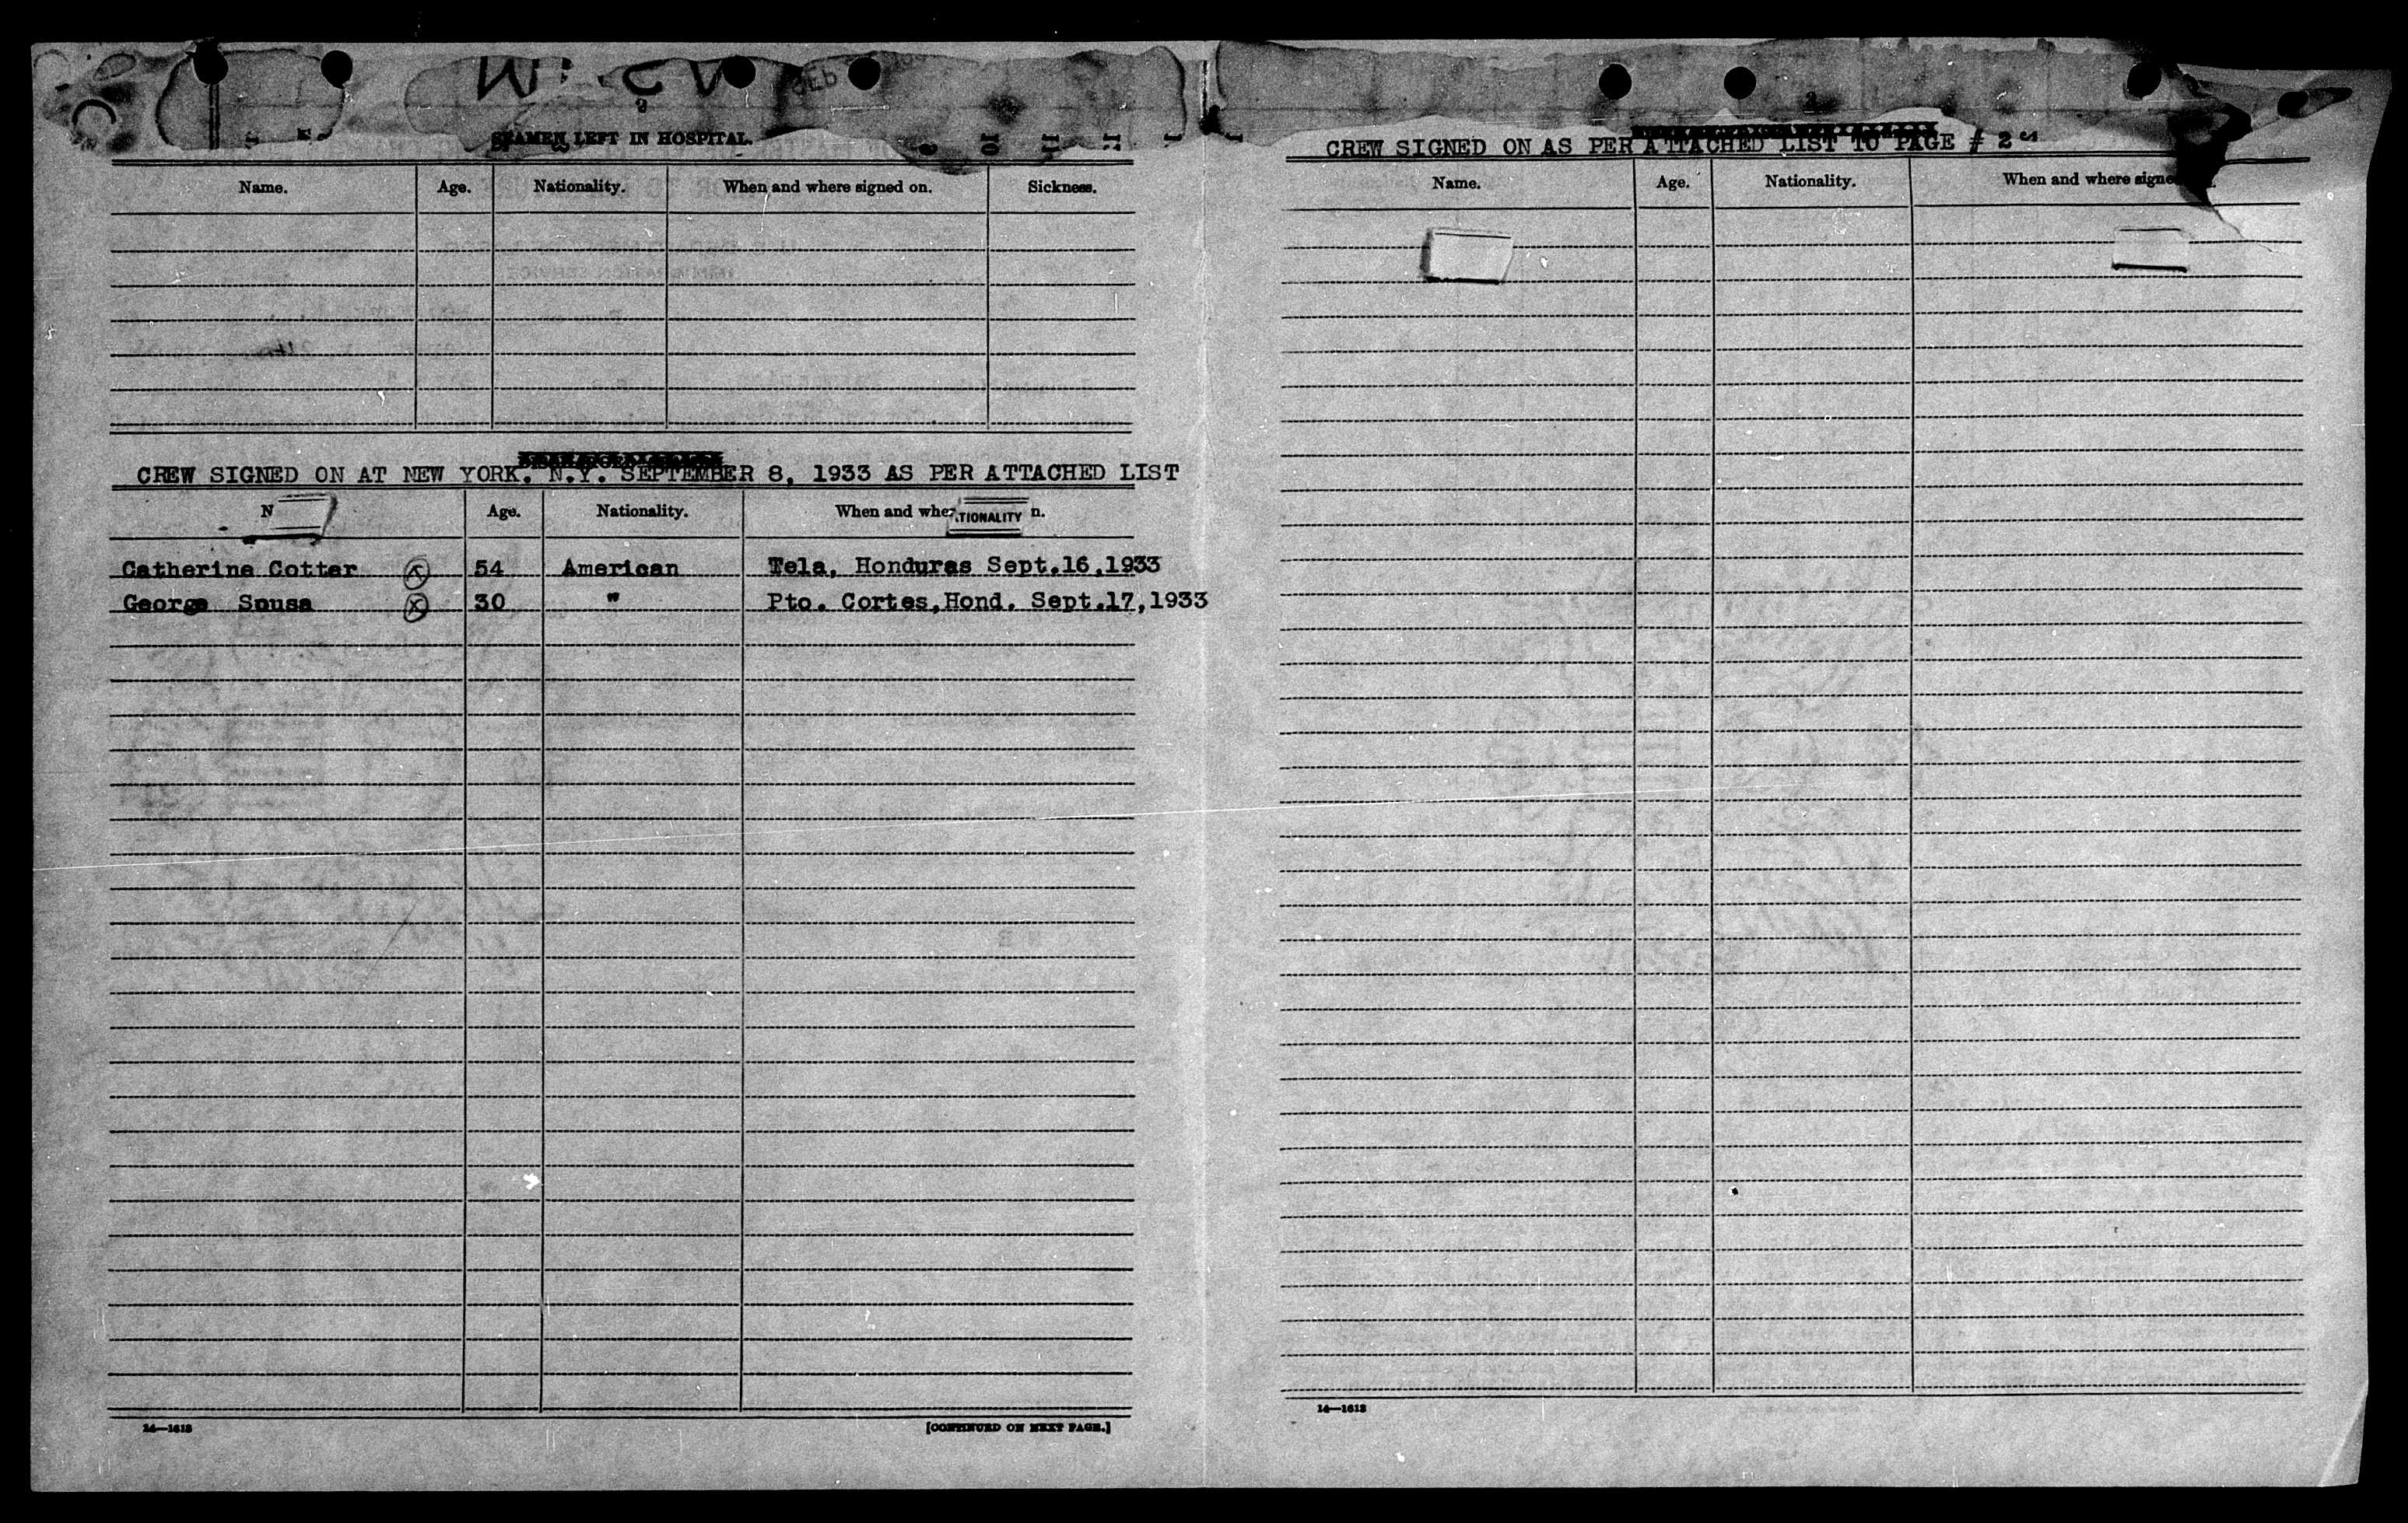 SEAMEN LEFT IN HOSPITAL.
Name. Age. Nationality. When and where signed on. Sickness.
CREW SIGNED ON AT NEW YORK. N.Y. SEPTEMBER 8, 1933 AS PER ATTACHED LIST
N Age. Nationality. When and whe TIONALITY n.
Catherine Cotter 54 American Tela, Honduras Sept.16,1933
George Sousa 30 " Pto. Cortes,Hond. Sept.17,1933
14—1613
[CONTINUED ON NEXT PAGE.]
CREW SIGNED ON AS PER ATTACHED LIST TO PAGE # 2
Name. Age. Nationality. When and where signe
14—1613